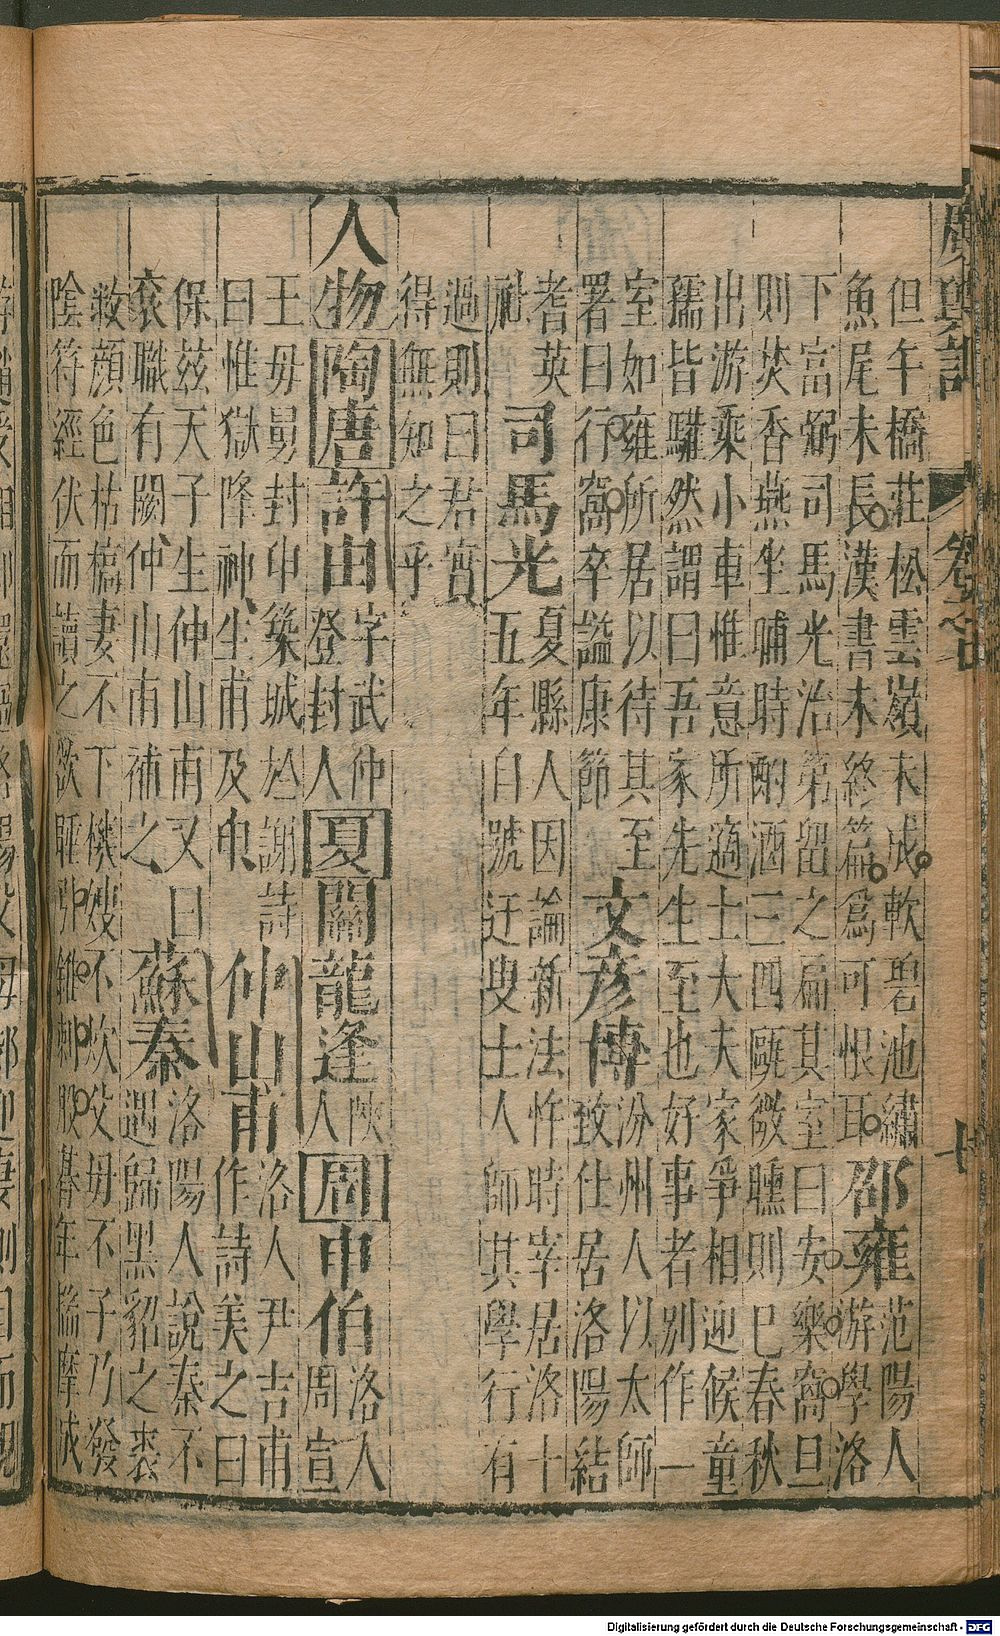 廣輿記 卷之六 十
但午橋莊松雲嶺未成軟碧池繡
魚尾未長漢書未終篇爲可恨耳 邵雍 范陽人
游學洛
下富弼司馬光治第留之扁其室曰安樂窩旦
則焚香燕坐晡時酌酒三四甌微醺則已春秋
出游乘小車惟意所適士大夫家爭相迎候童
孺皆驩然謂曰吾家先生至也好事者別作一
室如雍所居以待其至
署曰行窩卒謚康節 文彥博 汾州人以太師
致仕居洛陽結
耆英
社 司馬光 夏縣人因論新法忤時宰居洛十
五年自號迂叟士人師其學行有
過則曰君實
得無知之乎
人物 陶唐 許由 字武仲
登封人 夏 關龍逢 陝
人 周 申伯 洛人
周宣
王母舅封申築城於謝詩
曰惟嶽降神生甫及申 仲山甫 洛人尹吉甫
作詩美之曰
保茲天子生仲山甫又曰
衮職有闕仲山甫補之 蘇秦 洛陽人說秦不
遇歸黑貂之裘
敝顏色枯槁妻不下機嫂不炊父母不子乃發
陰符經伏而讀之欲睡引錐刺股朞年揣摩成
Digitalisierung gefördert durch die Deutsche Forschungsgemeinschaft - DFG